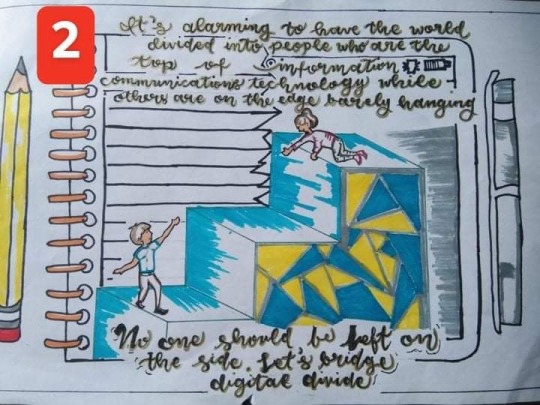 2
It's alarming to have the world
divided into people who are the
top of information
communications technology while
others are on the edge barely hanging
No one should be left on
the side. Let's bridge
digital divide